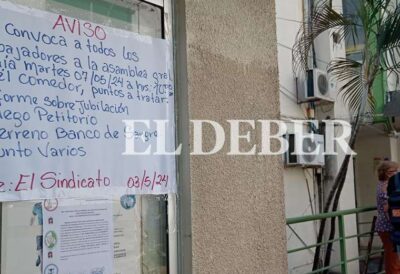 AVISO
convoca a todos los
bajadores a la asamblea gral.
día martes 07/05/24 a hrs:
el comedor, puntos a tratar:
forme sobre jubilación
liego Petitorio
erreno Banco de Sangre
unto Varios
: El Sindicato 03/5/24
EL DEBER